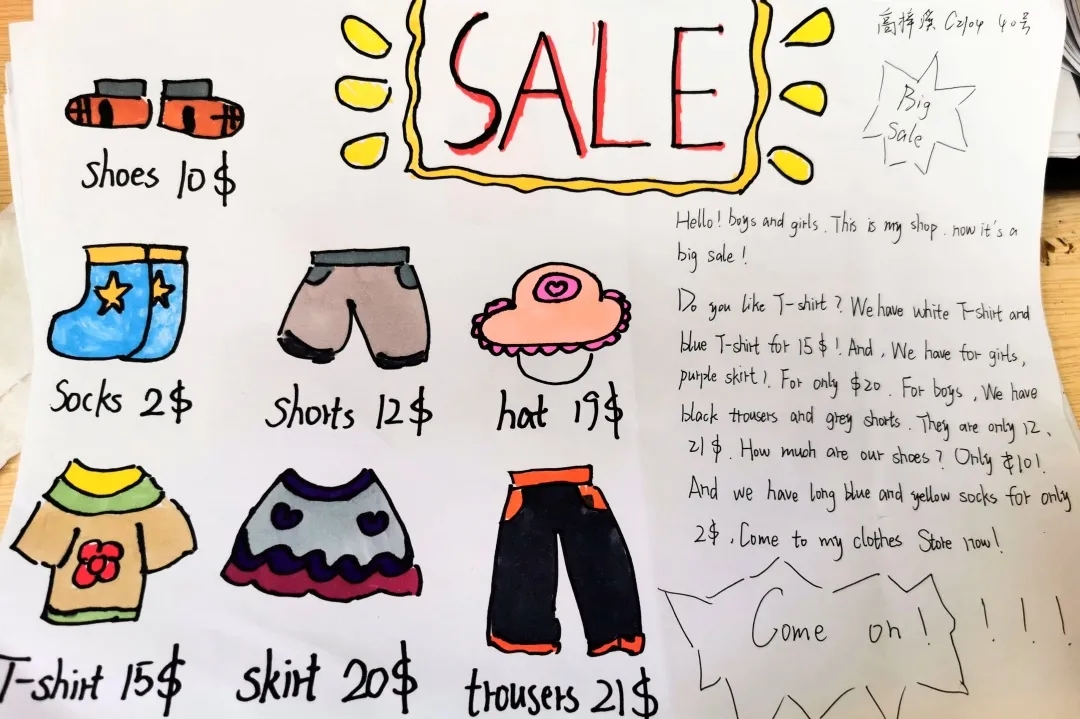 SALE
C2104 40号
Big
Sale
shoes 10$
Socks 2$
shorts 12$
hat 19$
T-shirt 15$
skirt 20$
trousers 21$
Hello! boys and girls. This is my shop. now it's a
big sale!
Do you like T-shirt? We have white T-shirt and
blue T-shirt for 15$! And, We have for girls,
purple skirt! For only $20. For boys, We have
black trousers and grey shorts. They are only 12、
21$. How much are our shoes? Only $10!
And we have long blue and yellow socks for only
2$. Come to my clothes Store now!
Come on! ! ! !